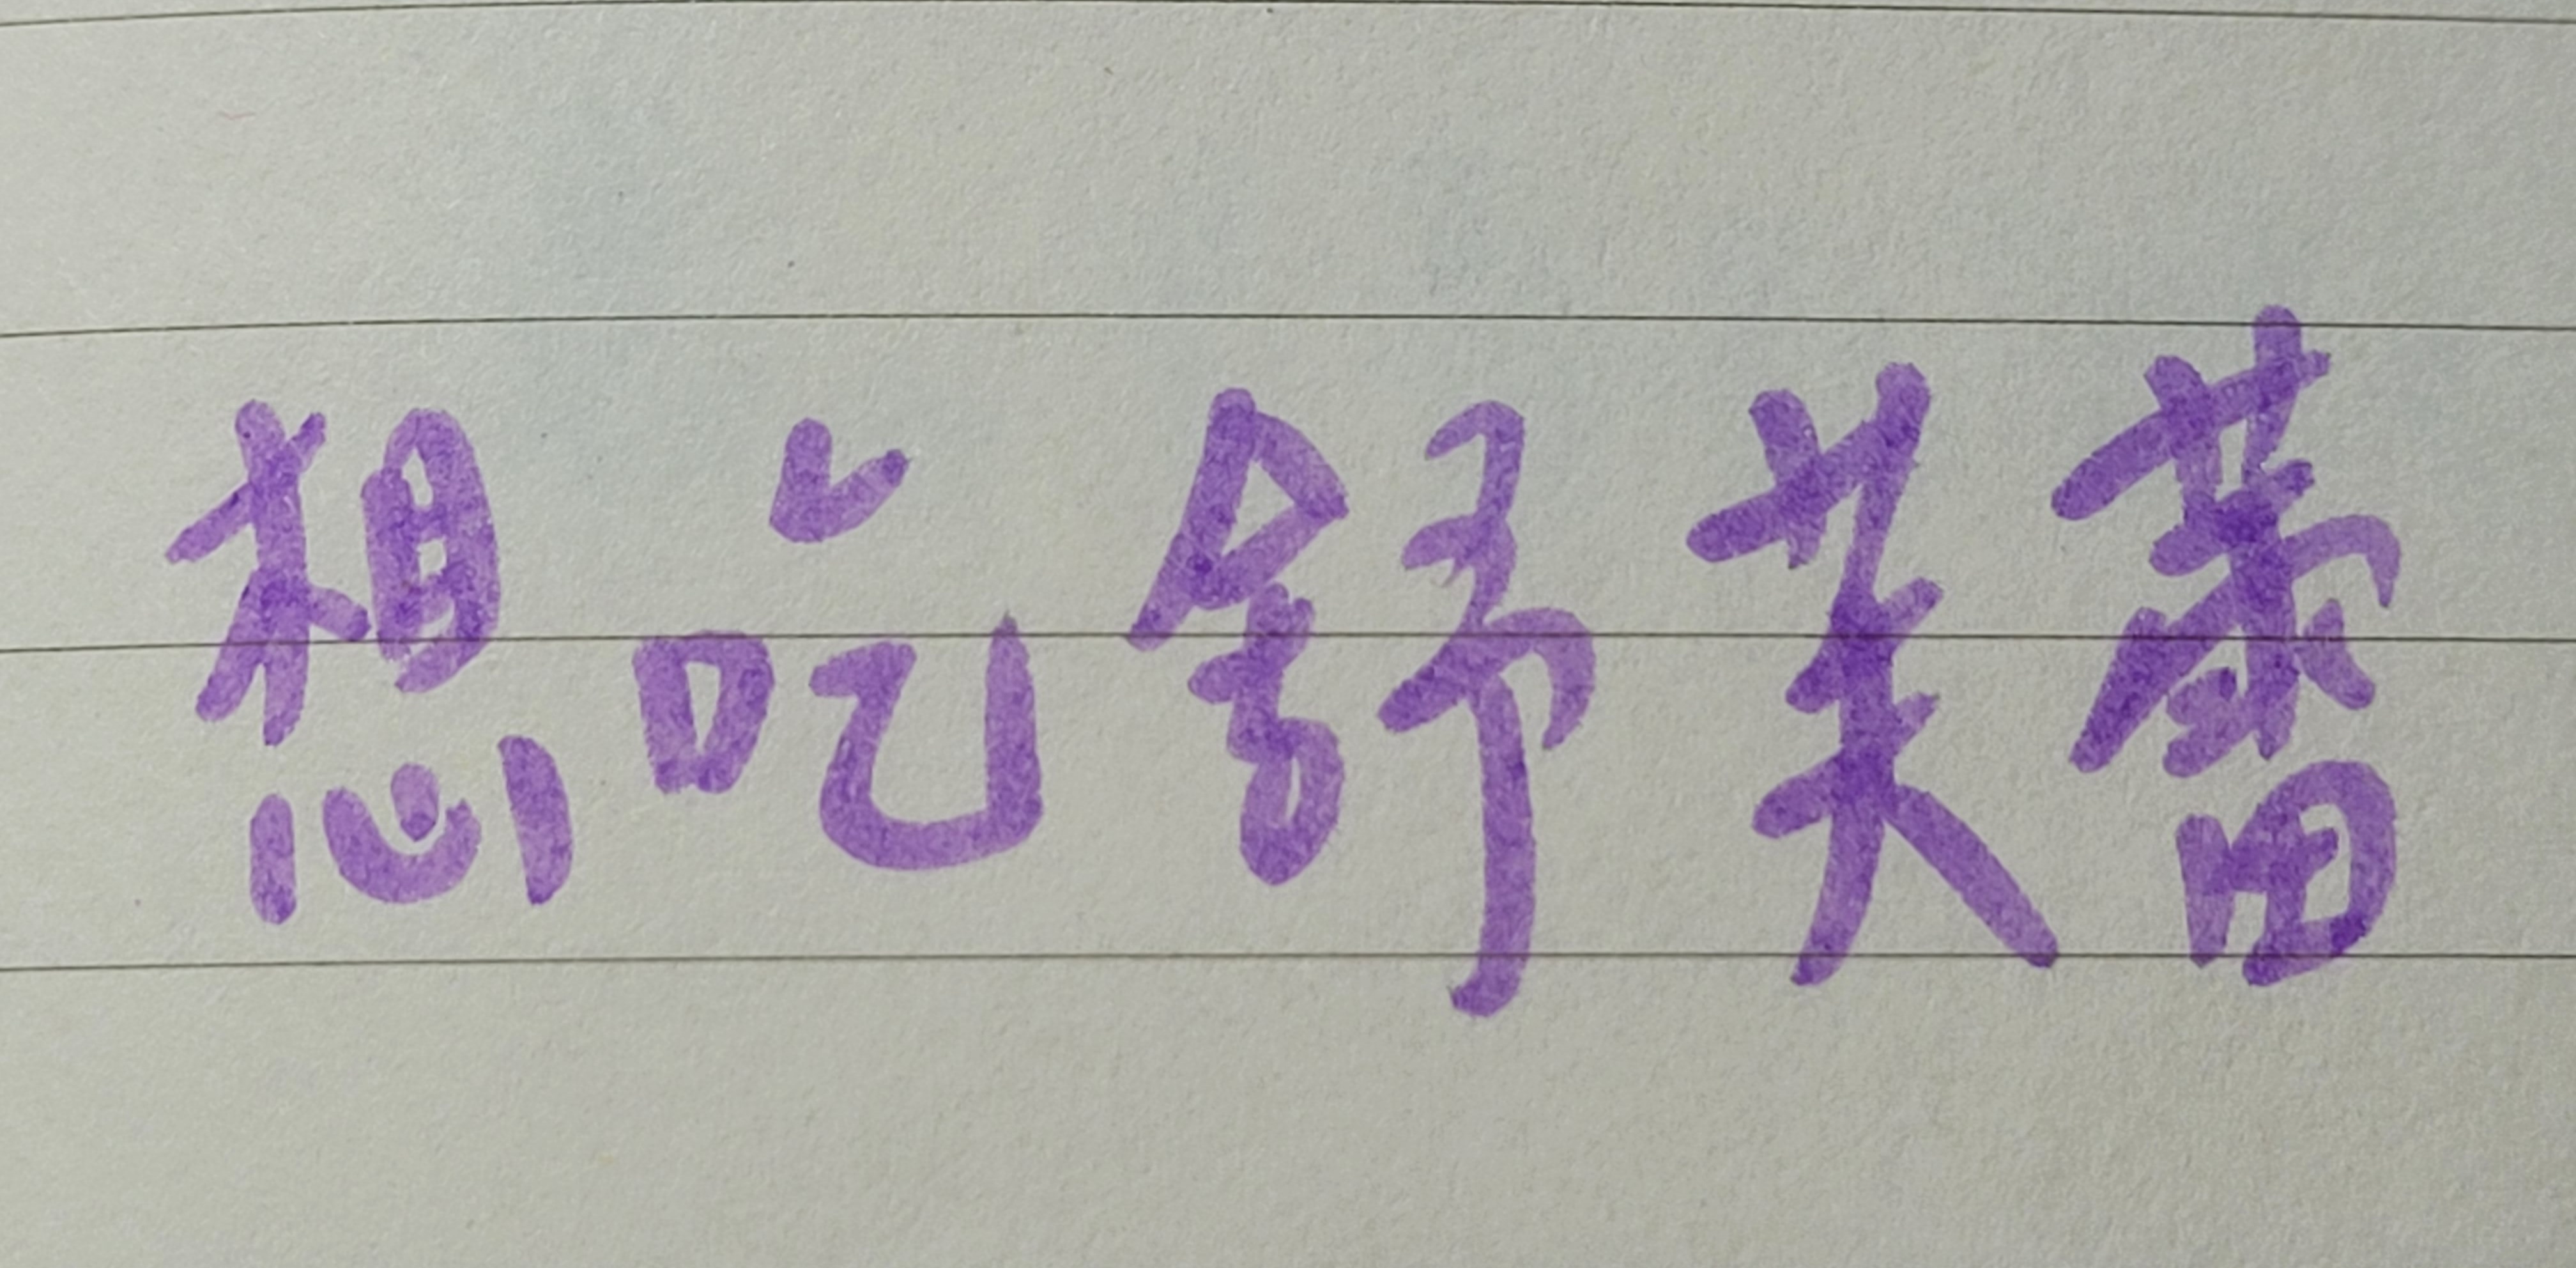 想吃舒芙蕾